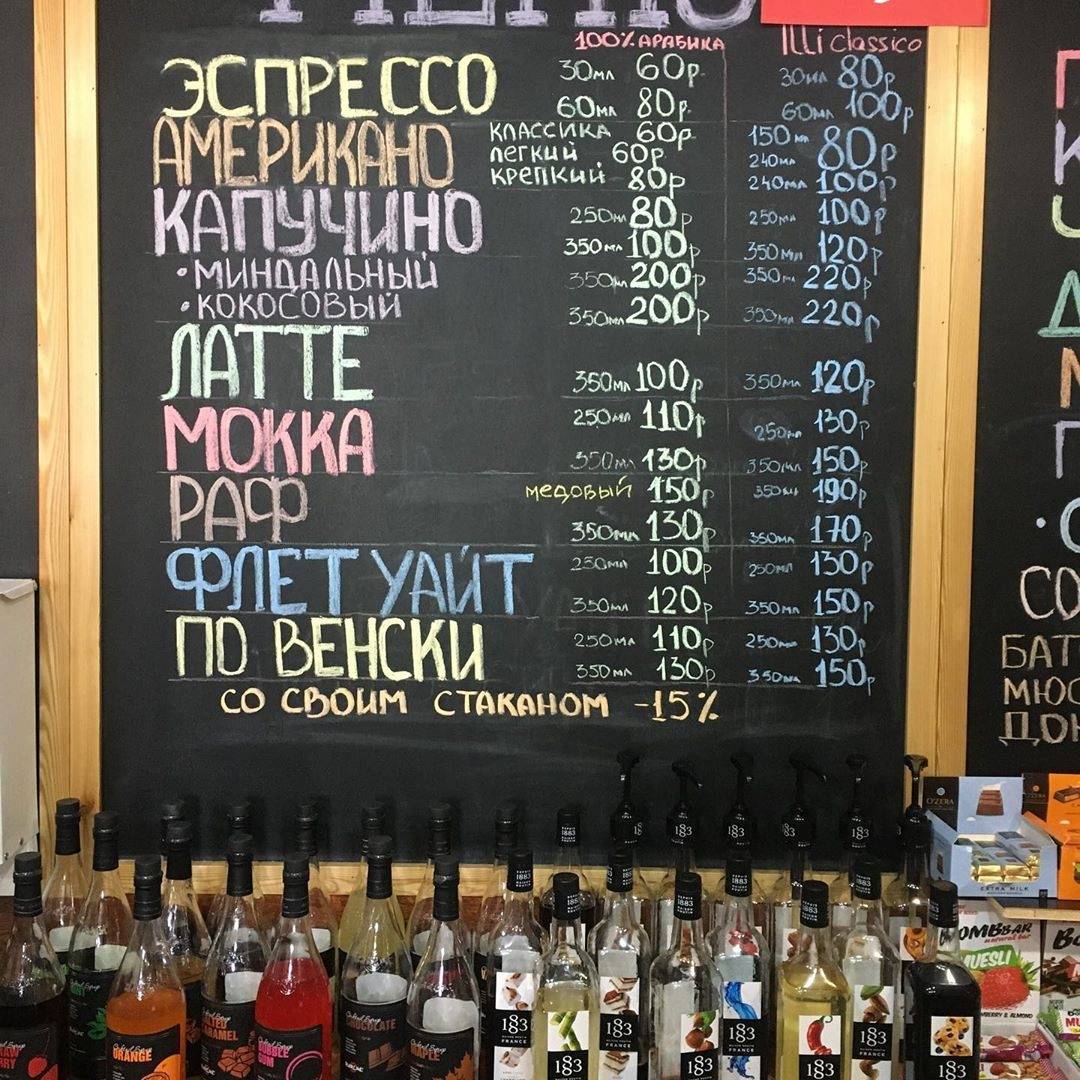 100% АРАБИКА Illi classico
ЭСПРЕССО 30мл 60р 30мл 80р
60мл 80р 60мл 100р
АМЕРИКАНО КЛАССИКА 60р 150мл 80р
ЛЕГКИЙ 60р 240мл
КРЕПКИЙ 80р 240мл 100р
КАПУЧИНО 250мл 80р 250мл 100р
350мл 100р 350мл 120р
• МИНДАЛЬНЫЙ 350мл 200р 350мл 220р
• КОКОСОВЫЙ 350мл 200р 350мл 220р
ЛАТТЕ 350мл 100р 350мл 120р
МОККА 250мл 110р 250мл 130р
350мл 130р 350мл 150р
РАФ медовый 150р 350мл 190р
350мл 130р 350мл 170р
ФЛЕТ УАЙТ 250мл 100р 250мл 130р
350мл 120р 350мл 150р
ПО ВЕНСКИ 250мл 110р 250мл 130р
350мл 130р 350мл 150р
СО СВОИМ СТАКАНОМ -15%
СО
БАТ
МЮС
ДОН
O'ZERA
EXTRA MILK
BOMBBAR
MUESLI
ORANGE
CARAMEL
BUBBLE GUM
CHOCOLATE
MAPLE
1883
FRANCE
1883
1883
FRANCE
1883
1883
1883
1883
1883